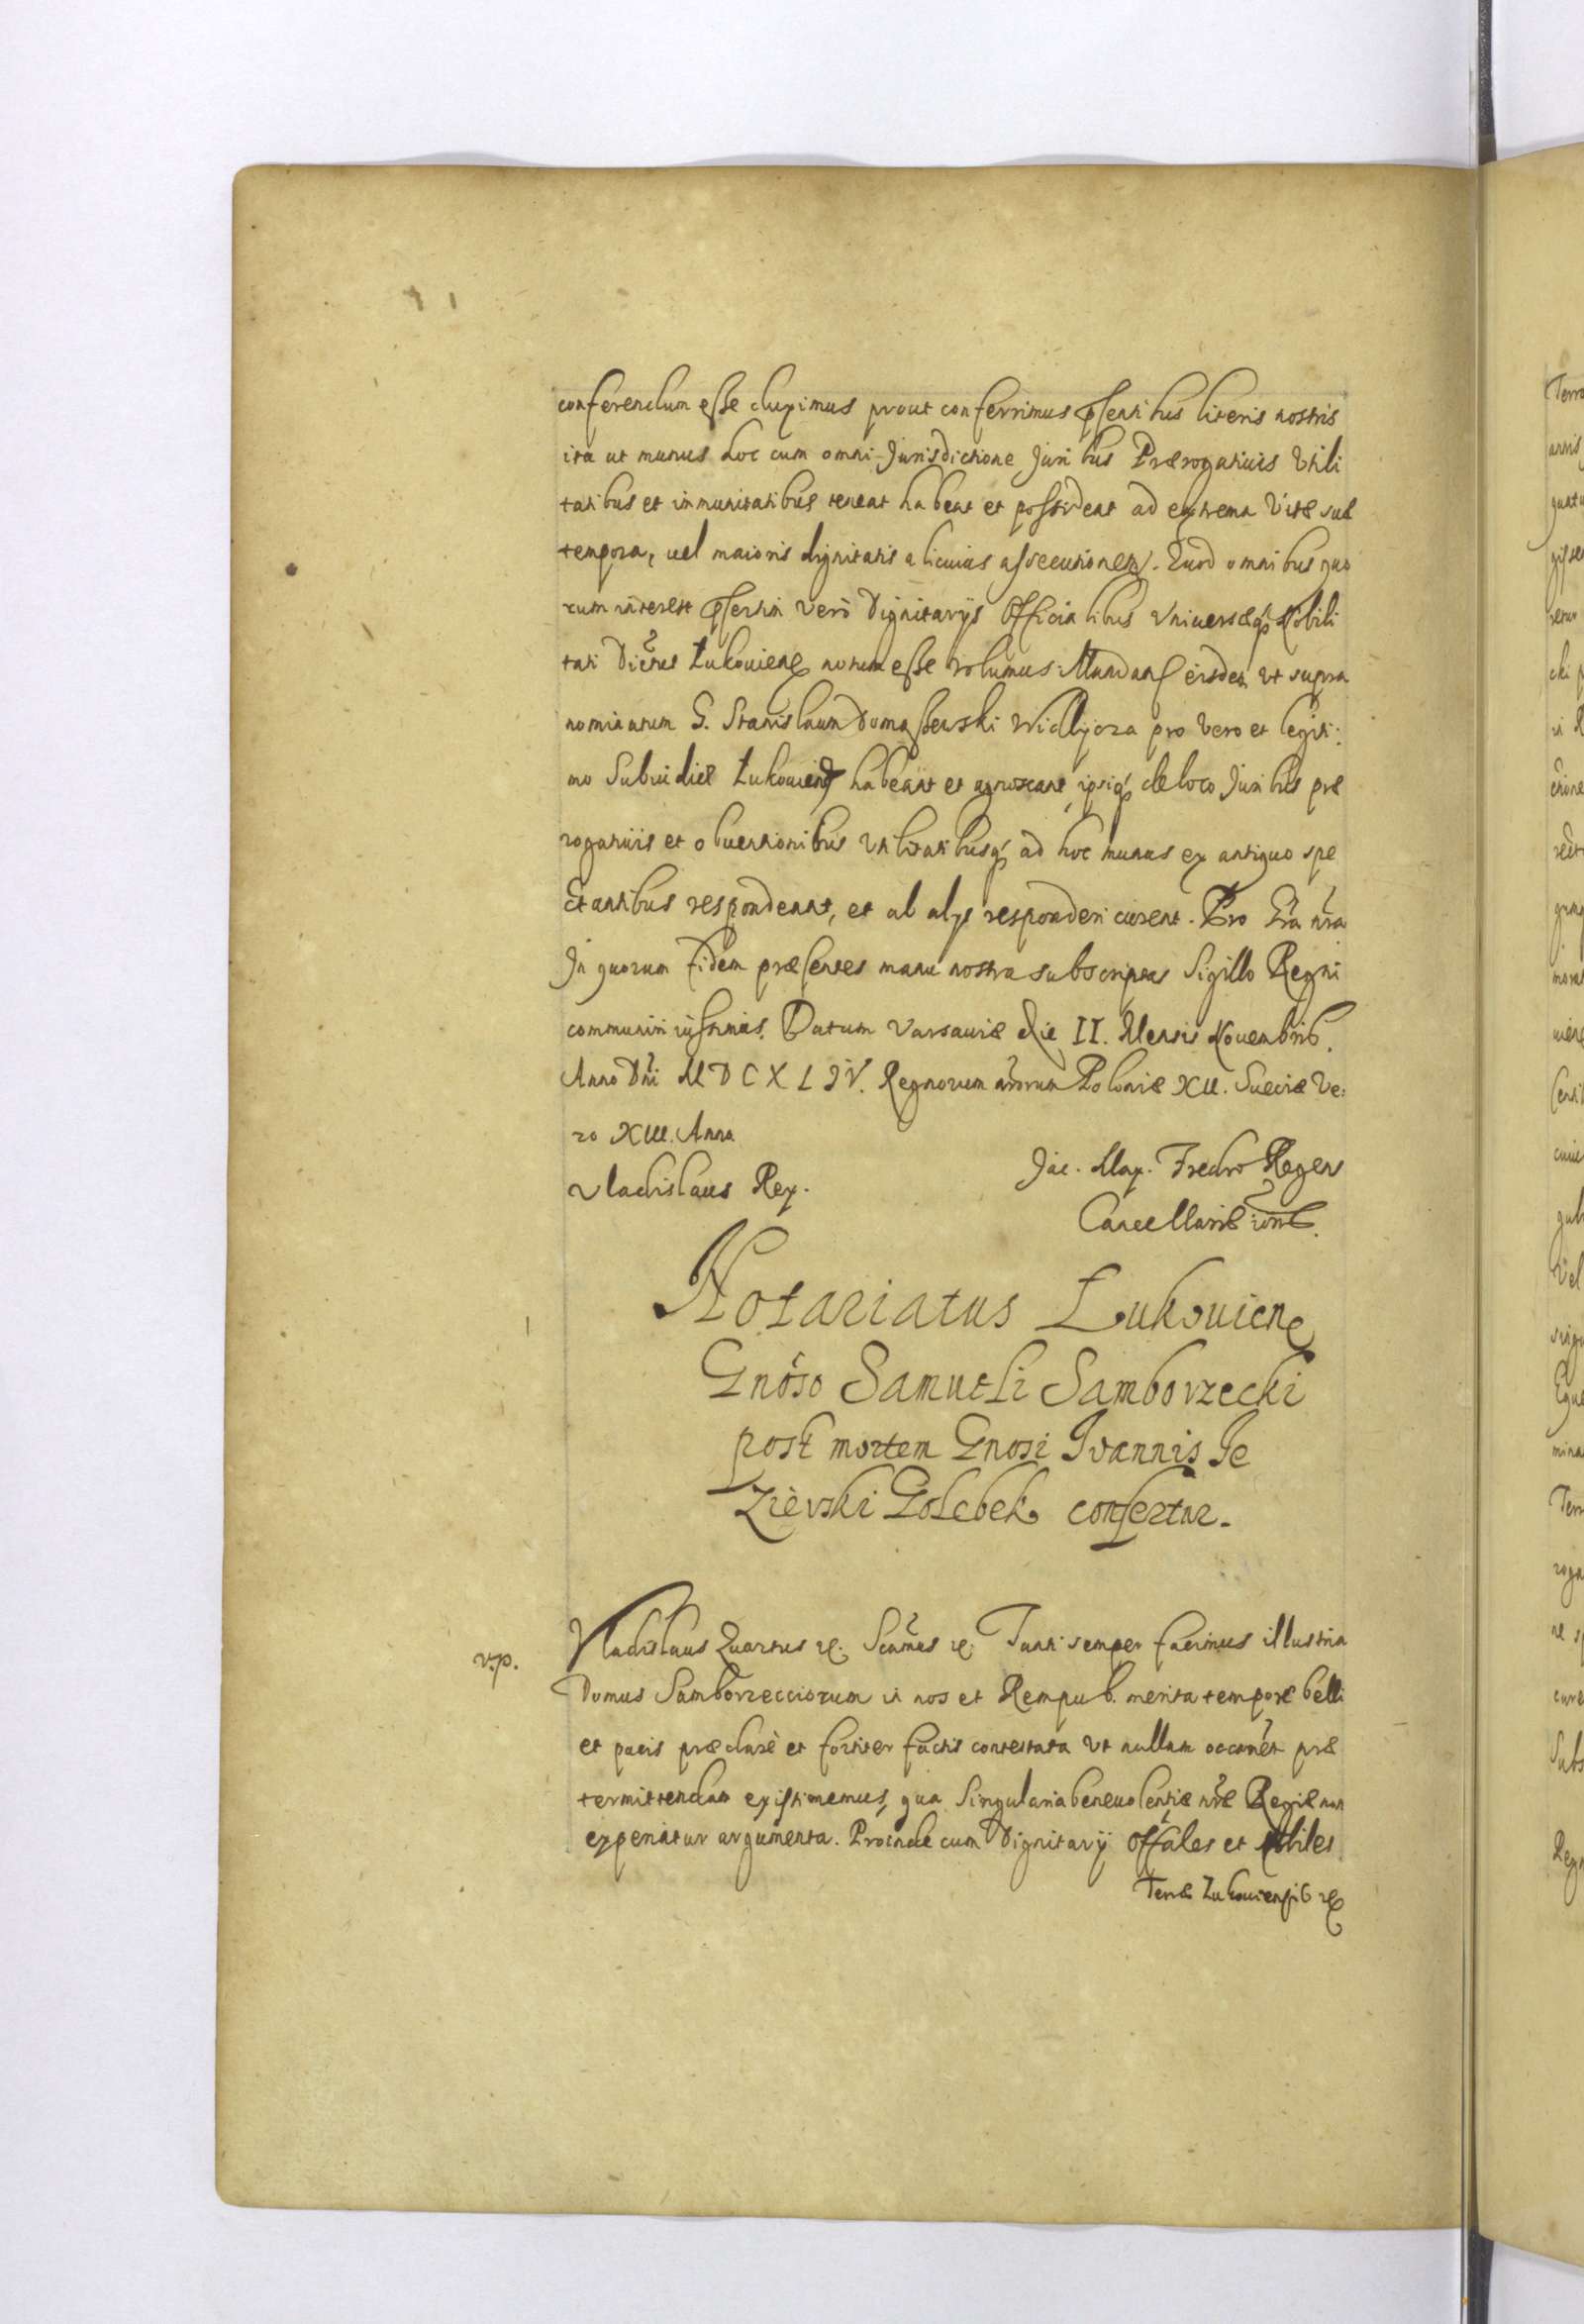 conferendum esse duximus prout conferrimus psentibus literis nostris
ita ut munus hoc cum omni Jurisdictione Juribus Prærogativis Vtili
tatibus et immunitatibus teneat habeat et possideat ad extrema Vitæ suæ
tempora, uel maioris dignitatis alicuius assecutionem. Quod omnibus quo
rum interest psertim verò Dignitarijs Officialibus Vniuersæq Nobili
tati Districtus Łukouien notum esse volumus. Mandan eisdem ut supra
nominatum G. Stanislaum Domaszewski pro vero et legiti:
mo Subiudice Łukouien habeant et agnoscant, ipsiq de loco Juribus præ
rogatiuis et obuentionibus vtilitatibusq ad hoc munus ex antiquo spe
ctantibus respondeant, et ab alys responderi curent. Pro Gra nra
In quorum fidem præsentes manu nostra subscriptas Sigillo Regni
communiri iussimus. Datum Varsauiæ die II. Mensis Nouembris.
Anno Dni MDCXLIV. Regnorum nrorum Poloniæ XII. Sueciæ Ve:
ro XIII. Anno
Vladislaus Rex.
Jac. Max. Fredro Regens
Cancellariæ
Notariatus Łukouien
Gnoso Samueli Samborzecki
post mortem Gnosi Ioannis Je
Zièrski Golębek confertur.
v.p.
Vladislaus Quartus etc. Tanti semper facimus illustria
Domus Samborzecciorum in nos et Rempub. merita tempore belli
et pacis præclarè et fortiter factis contestata Vt nullam occonem præ
termittendam existimemus, qua Singularia beneuolentiæ nræ Regiæ non
experiatur argumenta. Proinde cum Dignitarij Offales et Nobiles
Terræ Łukouiensis